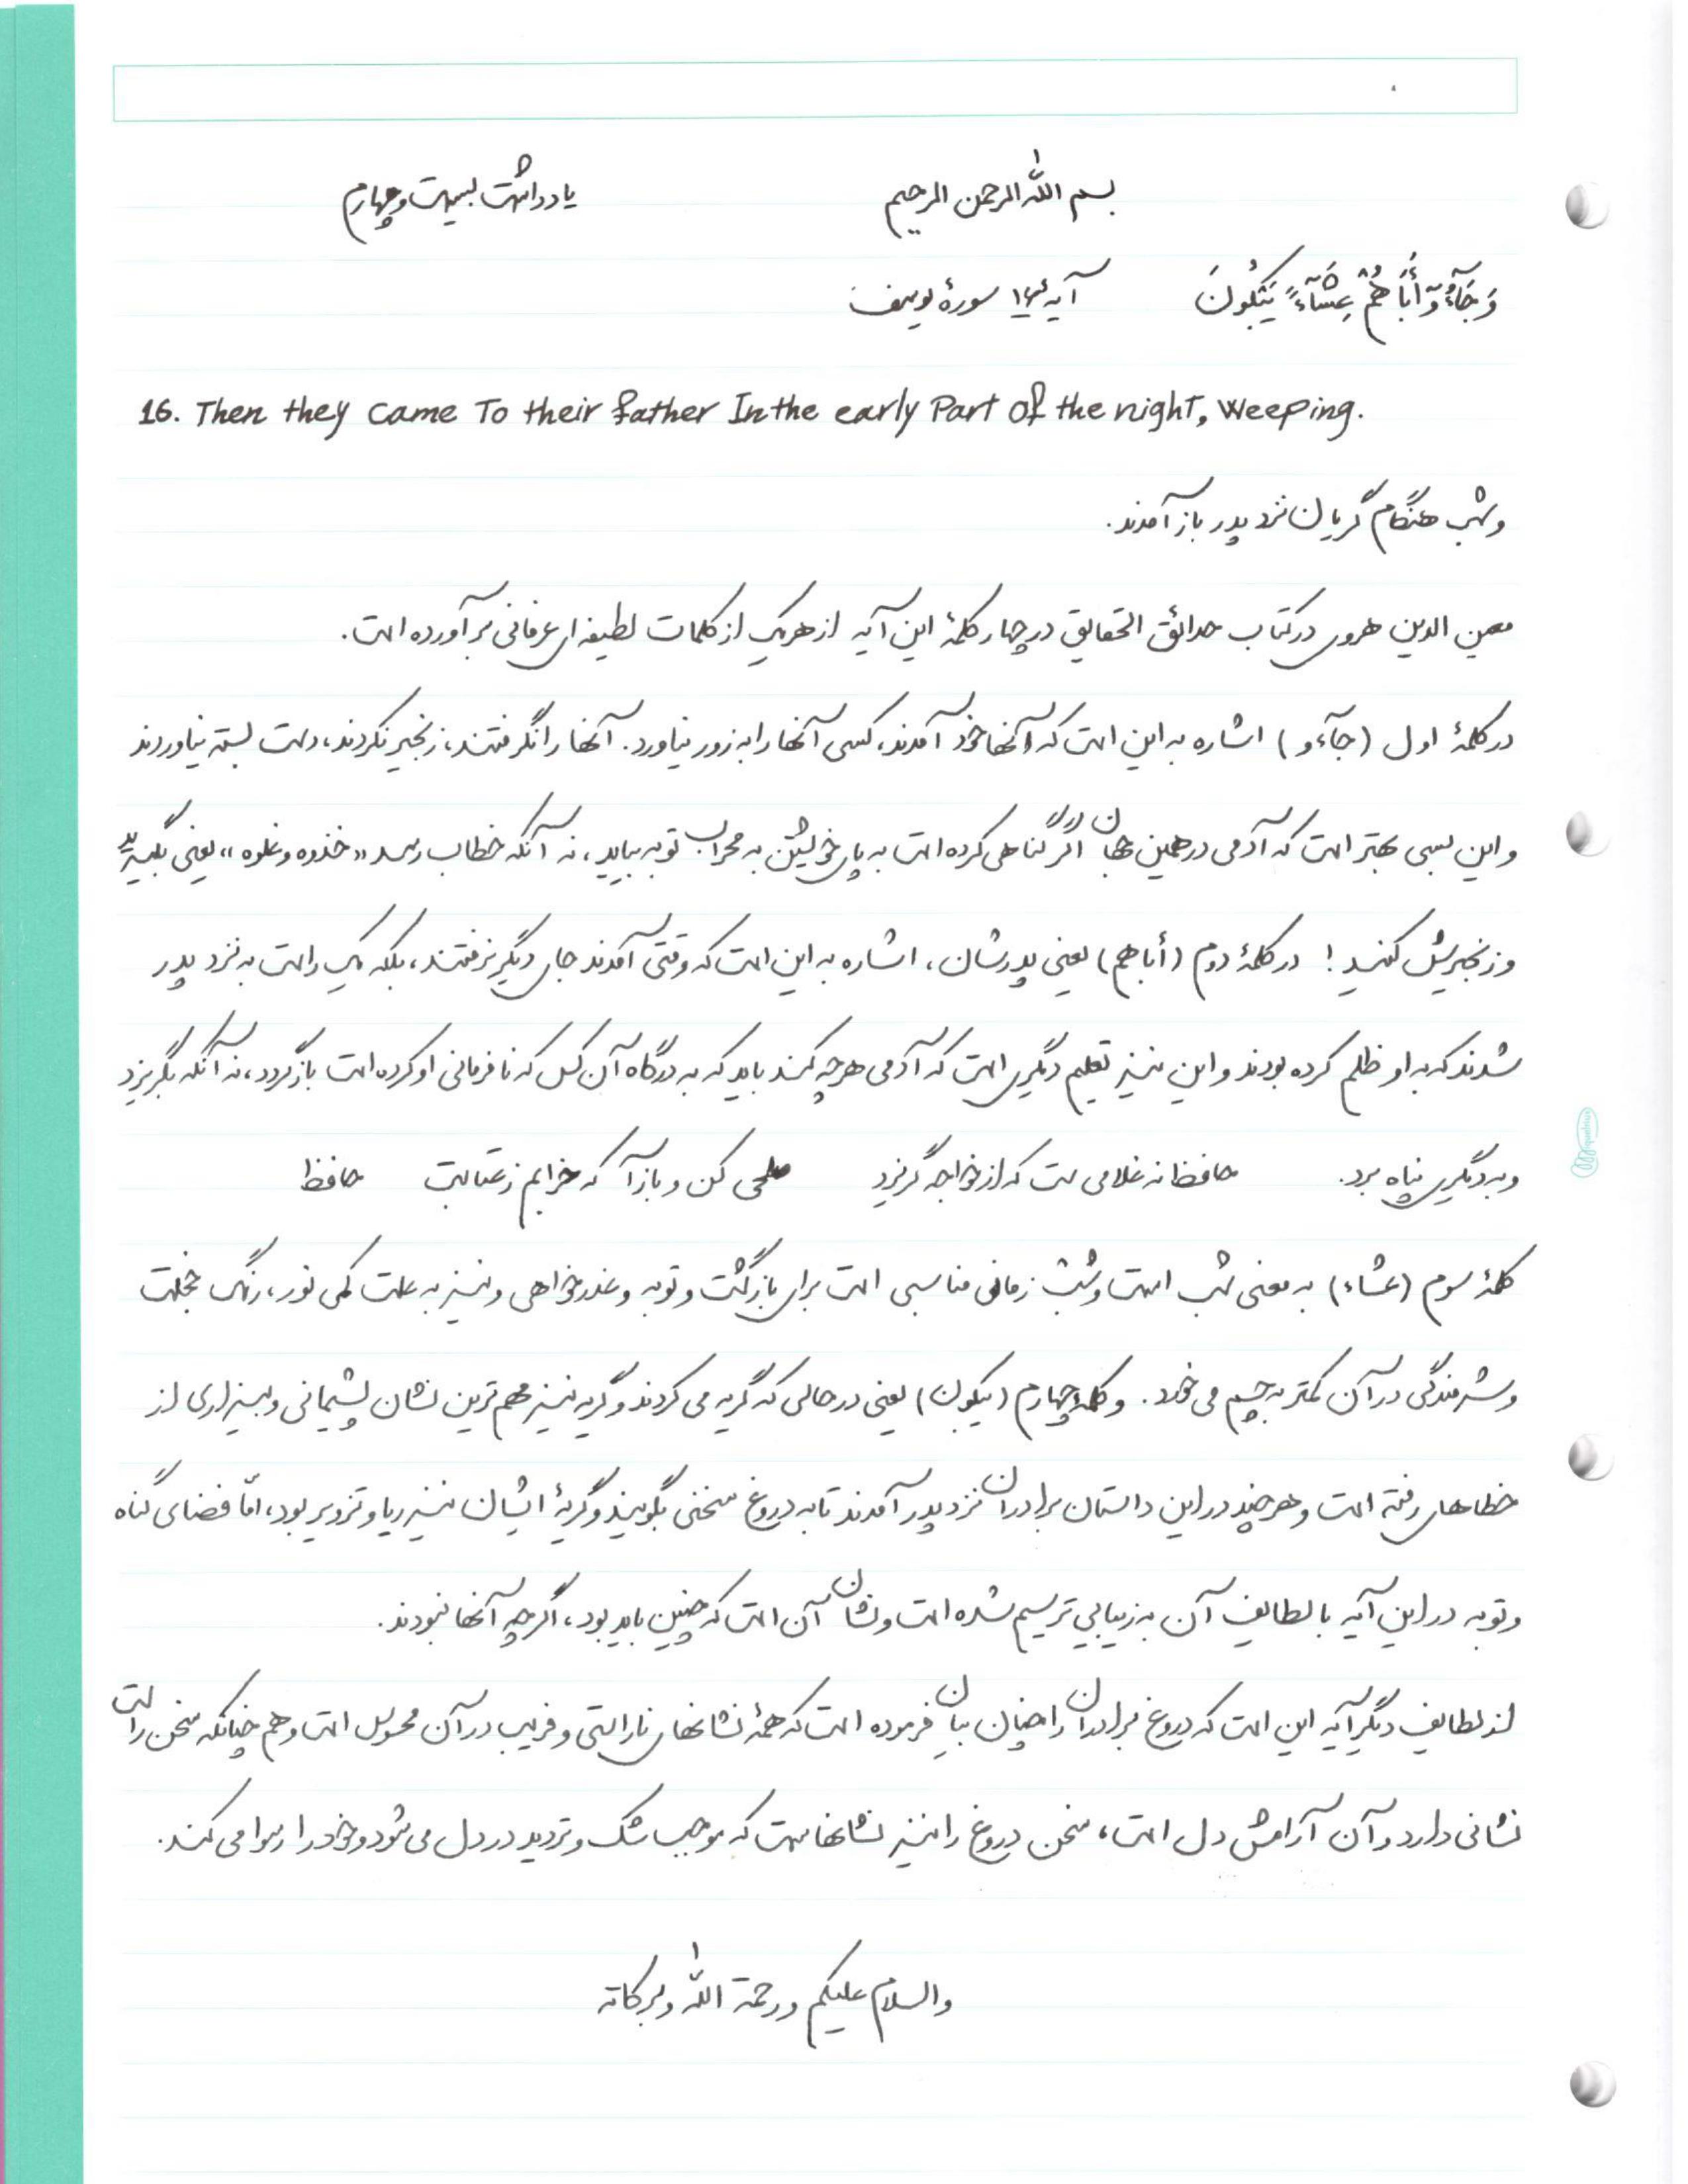 بسم الله الرحمن الرحیم یادداشت بیست و چهارم
وَ جَآءُوٓ أَبَاهُمْ عِشَآءً يَبْكُونَ آیهٔ ۱۶ سورهٔ یوسف
16. Then they came To their father In the early Part of the night, weeping.
و شب هنگام گریان نزد پدر باز آمدند.
معین الدین هروی در کتاب حدائق الحقایق در چهار کلمهٔ این آیه از هر یک از کلمات لطیفه ای عرفانی برآورده است.
در کلمهٔ اول (جآءو) اشاره به این است که آنها خود آمدند، کسی آنها را به زور نیاورد. آنها را نگرفتند، زنجیر نکردند، دست بسته نیاوردند
و این بسی بهتر است که آدمی در همین جهان اگر گناهی کرده است به پای خویشتن به محراب توبه بیاید، نه آنکه خطاب رسد «خذوه و غلوه» یعنی بگیرید
و زنجیرش کنید! در کلمهٔ دوم (أباهم) یعنی پدرشان، اشاره به این است که وقتی آمدند جای دیگر نرفتند، بلکه یک راست به نزد پدر
شدند که به او ظلم کرده بودند و این نیز تعلیم دیگری است که آدمی هر چه کند باید که به درگاه آن کس که نافرمانی او کرده است بازگردد، نه آنکه بگریزد
و به دیگری پناه برد. حافظ نه غلامی ست که از خواجه گریزد صلحی کن و بازآ که خرابم ز عتابت حافظ
کلمهٔ سوم (عشاء) به معنی شب است و شب زمانی مناسبی است برای بازگشت و توبه و عذرخواهی و نیز به علت کمی نور، رنگ خجلت
و شرمندگی در آن کمتر به چشم می خورد. و کلمهٔ چهارم (یبکون) یعنی در حالی که گریه می کردند و گریه نیز مهم ترین نشان پشیمانی و بیزاری از
خطاهای رفته است و هر چند در این داستان برادران نزد پدر آمدند تا به دروغ سخنی بگویند و گریهٔ ایشان نیز ریا و تزویر بود، امّا فضای گناه
و توبه در این آیه با لطایف آن به زیبایی ترسیم شده است و نشان آن است که چنین باید بود، اگر چه آنها نبودند.
از لطایف دیگر آیه این است که دروغ برادران را چنان بیان فرموده است که همهٔ نشانهای ناراستی و فریب در آن محسوس است و هم چنانکه سخن راست
نشانی دارد و آن آرامش دل است، سخن دروغ را نیز نشانهاست که موجب شک و تردید در دل می شود و خود را رسوا می کند.
والسلام علیکم و رحمة الله و برکاته